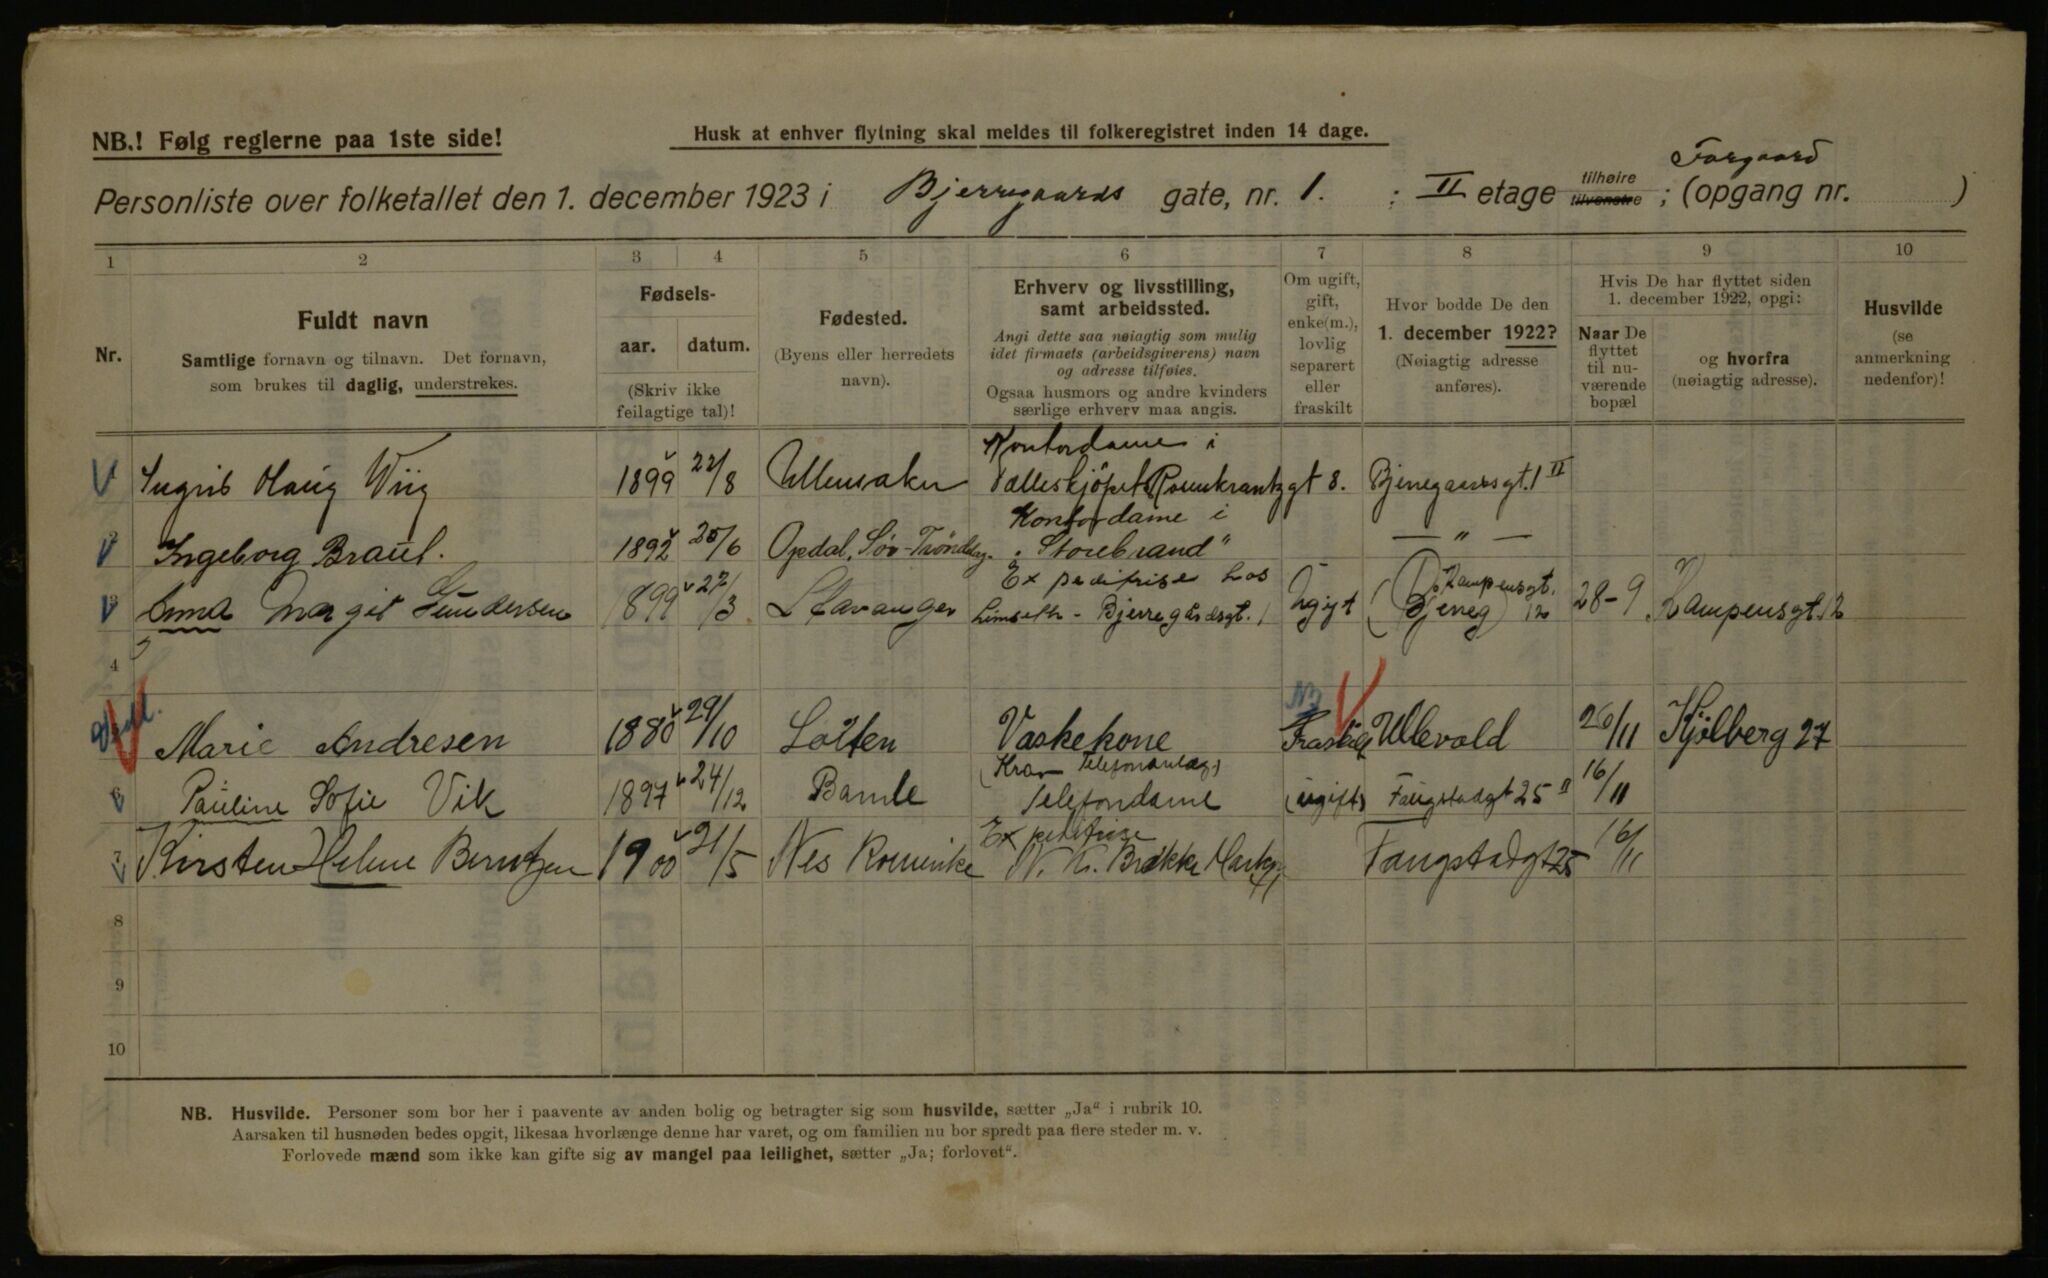 NB.! Følg reglerne paa 1ste side!
Husk at enhver flytning skal meldes til folkeregistret inden 14 dage.
Forgaard
Personliste over folketallet den 1. december 1923 i Bjerregaards gate, nr. 1. : II etage tilhøire tilvenstre ; (opgang nr. )
1 2 3 4 5 6 7 8 9 10
Nr.
Fuldt navn
Samtlige fornavn og tilnavn. Det fornavn,
som brukes til daglig, understrekes.
Fødsels-
aar. datum.
(Skriv ikke
feilagtige tal)!
Fødested.
(Byens eller herredets
navn).
Erhverv og livsstilling,
samt arbeidssted.
Angi dette saa nøiagtig som mulig
idet firmaets (arbeidsgiverens) navn
og adresse tilføies.
Ogsaa husmors og andre kvinders
særlige erhverv maa angis.
Om ugift,
gift,
enke(m.),
lovlig
separert
eller
fraskilt
Hvor bodde De den
1. december 1922?
(Nøiagtig adresse
anføres).
Hvis De har flyttet siden
1. december 1922, opgi:
Naar De
flyttet
til nu-
værende
bopæl
og hvorfra
(nøiagtig adresse).
Husvilde
(se
anmerkning
nedenfor)!
Kontordame i
1 Ingrid Haug Wiig 1899 22/8 Ullensaker Rosenkrantzgt 8. Bjerregaardsgt. 1 II
Kontordame i
2 Ingeborg Braut. 1892 25/6 Opdal, Sør-Trøndelag. "Storebrand" — " —
Expeditrise hos
3 Anna Margit Gundersen 1899 27/3 Stavanger Limseth - Bjerregårdsgt. 1 Ugift Kampensgt. 12 28-9 Kampensgt. 12
4
5 Marie Andresen 1880 29/10 Løiten Vaskekone Fraskilt Ullevold 26/11 Kjølberg 27
(Kra Telefonanlæg)
6 Pauline Sofie Vik 1897 24/12 Bamle Telefondame (ugift) Faugstadgt 25 II 16/11
Expeditrise
7 Kirsten Helene Berntzen 1900 21/5 Nes Romerike Faugstadgt 25 16/11
8
9
10
NB. Husvilde. Personer som bor her i paavente av anden bolig og betragter sig som husvilde, sætter „Ja“ i rubrik 10.
Aarsaken til husnøden bedes opgit, likesaa hvorlænge denne har varet, og om familien nu bor spredt paa flere steder m. v.
Forlovede mænd som ikke kan gifte sig av mangel paa leilighet, sætter „Ja; forlovet“.